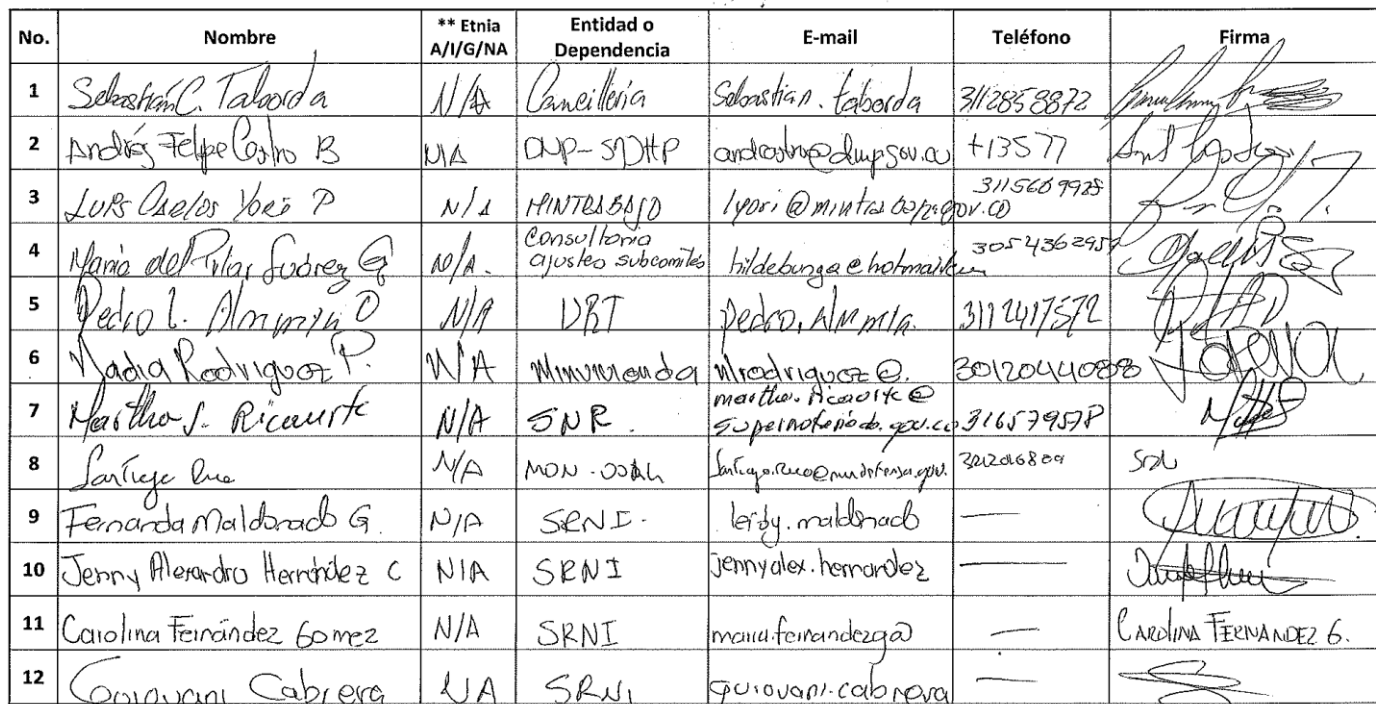 No. Nombre ** Etnia A/I/G/NA Entidad o Dependencia E-mail Teléfono Firma
1 Sebastián C. Taborda N/A Cancillería Sebastian.taborda 3112858872
2 Andrés Felipe Castro B N/A DNP-SDHP andcastro@dnp.gov.co +13577
3 Luis Carlos Yori P N/A MINTRABAJO lyori@mintrabajo.gov.co 3115609928
4 Maria del Pilar Suárez G N/A. Consultoria ajustes subcomités hildebunga@hotmail.com 3054362959
5 Pedro L. N/A URT Pedro. 3112417572
6 Nadia Rodriguez P. N/A Minvivienda nrodriguez@. 3012044088
7 Martha J. Ricaurte N/A SNR. martha.ricaurte@supernotariado.gov.co 316579578
8 Santiago N/A
9 Fernanda Maldonado G. N/A SRNI. leidy.maldonado —
10 Jenny Alexandra Hernández C N/A SRNI jennyalex.hernandez —
11 Carolina Fernández Gomez N/A SRNI maria.fernandezg@ — CAROLINA FERNANDEZ G.
12 Guiovani Cabrera N/A SRNI guiovani.cabrera —